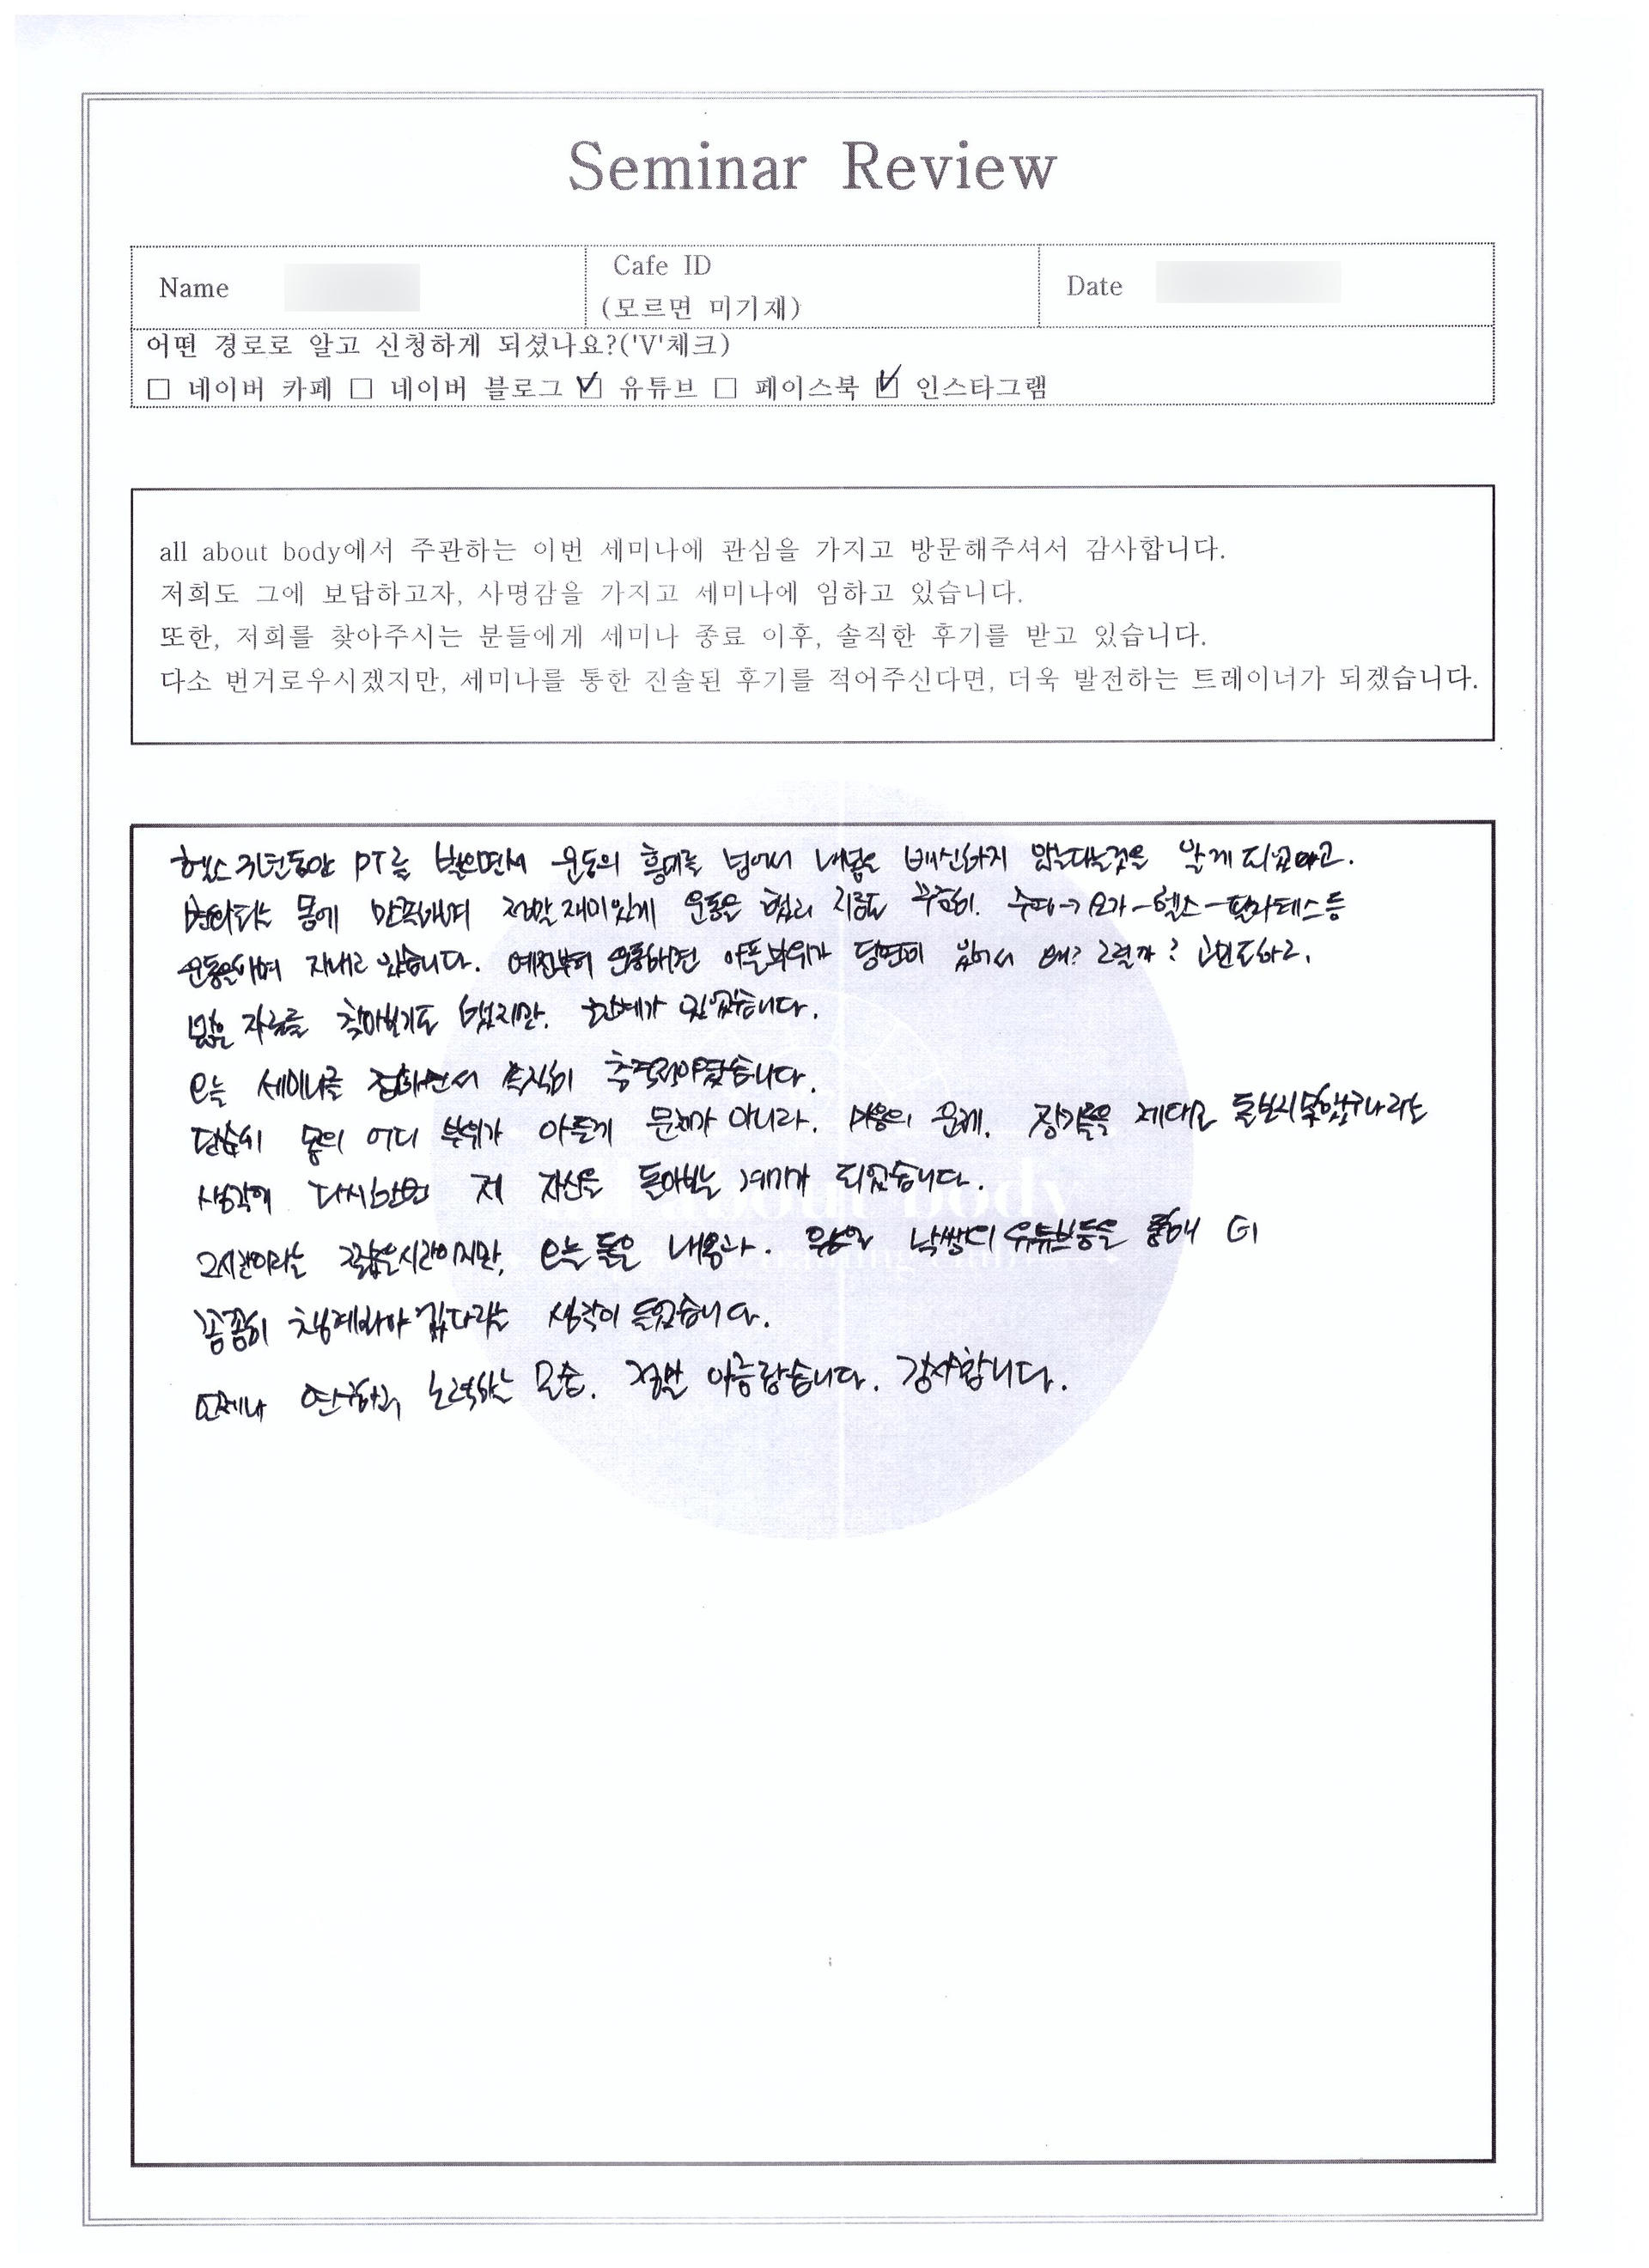 Seminar Review
Name
Cafe ID
(모르면 미기재)
Date
어떤 경로로 알고 신청하게 되셨나요?('V'체크)
□ 네이버 카페 □ 네이버 블로그 ☑ 유튜브 □ 페이스북 ☑ 인스타그램
all about body에서 주관하는 이번 세미나에 관심을 가지고 방문해주셔서 감사합니다.
저희도 그에 보답하고자, 사명감을 가지고 세미나에 임하고 있습니다.
또한, 저희를 찾아주시는 분들에게 세미나 종료 이후, 솔직한 후기를 받고 있습니다.
다소 번거로우시겠지만, 세미나를 통한 진솔된 후기를 적어주신다면, 더욱 발전하는 트레이너가 되겠습니다.
헬스 PT를 받으면서 운동의 흥미를 넘어서 내몸은 배신하지 않는다는것을 알게 되었고.
변화되는 몸에 만족하며 정말 재미있게 운동을 했고 지금도 꾸준히. 요가-헬스-필라테스등
운동을하며 지내고 있습니다. 예전부터 운동하면 아픈부위가 당연히 있어서 왜? 그럴까? 고민도하고.
많은 자료를 찾아보기도 했지만. 한계가 있었습니다.
오늘 세미나를 접하면서 솔직히 충격적이였습니다.
단순히 몸의 어디 부위가 아픈게 문제가 아니라. 마음의 문제. 장기들을 제대로 돌보지못했구나라는
생각에 다시한번 저 자신을 돌아보는 계기가 되었습니다.
2시간이라는 짧은시간이지만, 오늘 들은 내용과. 유튜브등을 통해 더
꼼꼼히 챙겨봐야 겠다라는 생각이 들었습니다.
언제나 연구하고, 노력하는 모습. 정말 아름답습니다. 감사합니다.
all about body